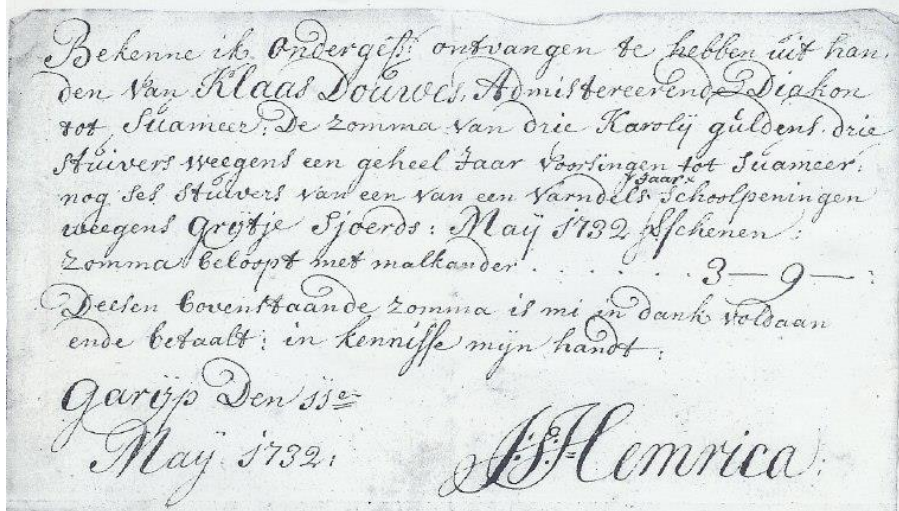 Bekenne ik Ondergess: ontvangen te hebben uit han
den van Klaas Douwes, Admistereerende Diakon
tot Suameer: De zomma van drie Karolÿ guldens drie
stuivers weegens een geheel Jaar voorsingen tot Suameer:
nog ses stuivers van een van een varndels Jaar Schoolpeningen
weegens Grÿtje Sjoerds: Maÿ 1732
zomma beloopt met malkander . . . . . . . 3 — 9 — :
Deesen bovenstaande zomma is mi in dank voldaan
ende betaalt: in kennisse mÿn handt:
Garÿp Den 11e
Maÿ 1732:
Hemrica: